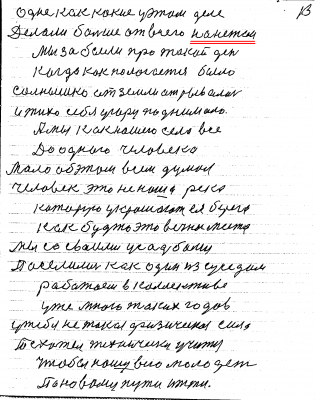 13
Одне как какие у этом деле
Делали больше от всего
Мы забыли про такой ден
Когда как полагается было
солнышко от земли отрывалос
и тихо себя угору поднимало.
А мы как нашего села все
До одного человека
Мало об этом всем думал
Человек это не наша река
которую украшают ея берега
как будто это
мы со своими усадбами
Поселилис как один из суседам
работаем в коллективе
уже много таких годов
у тебя не такая физическая сила
техники учит
Чтобы нашу всю молодеж
По новому пути итти.